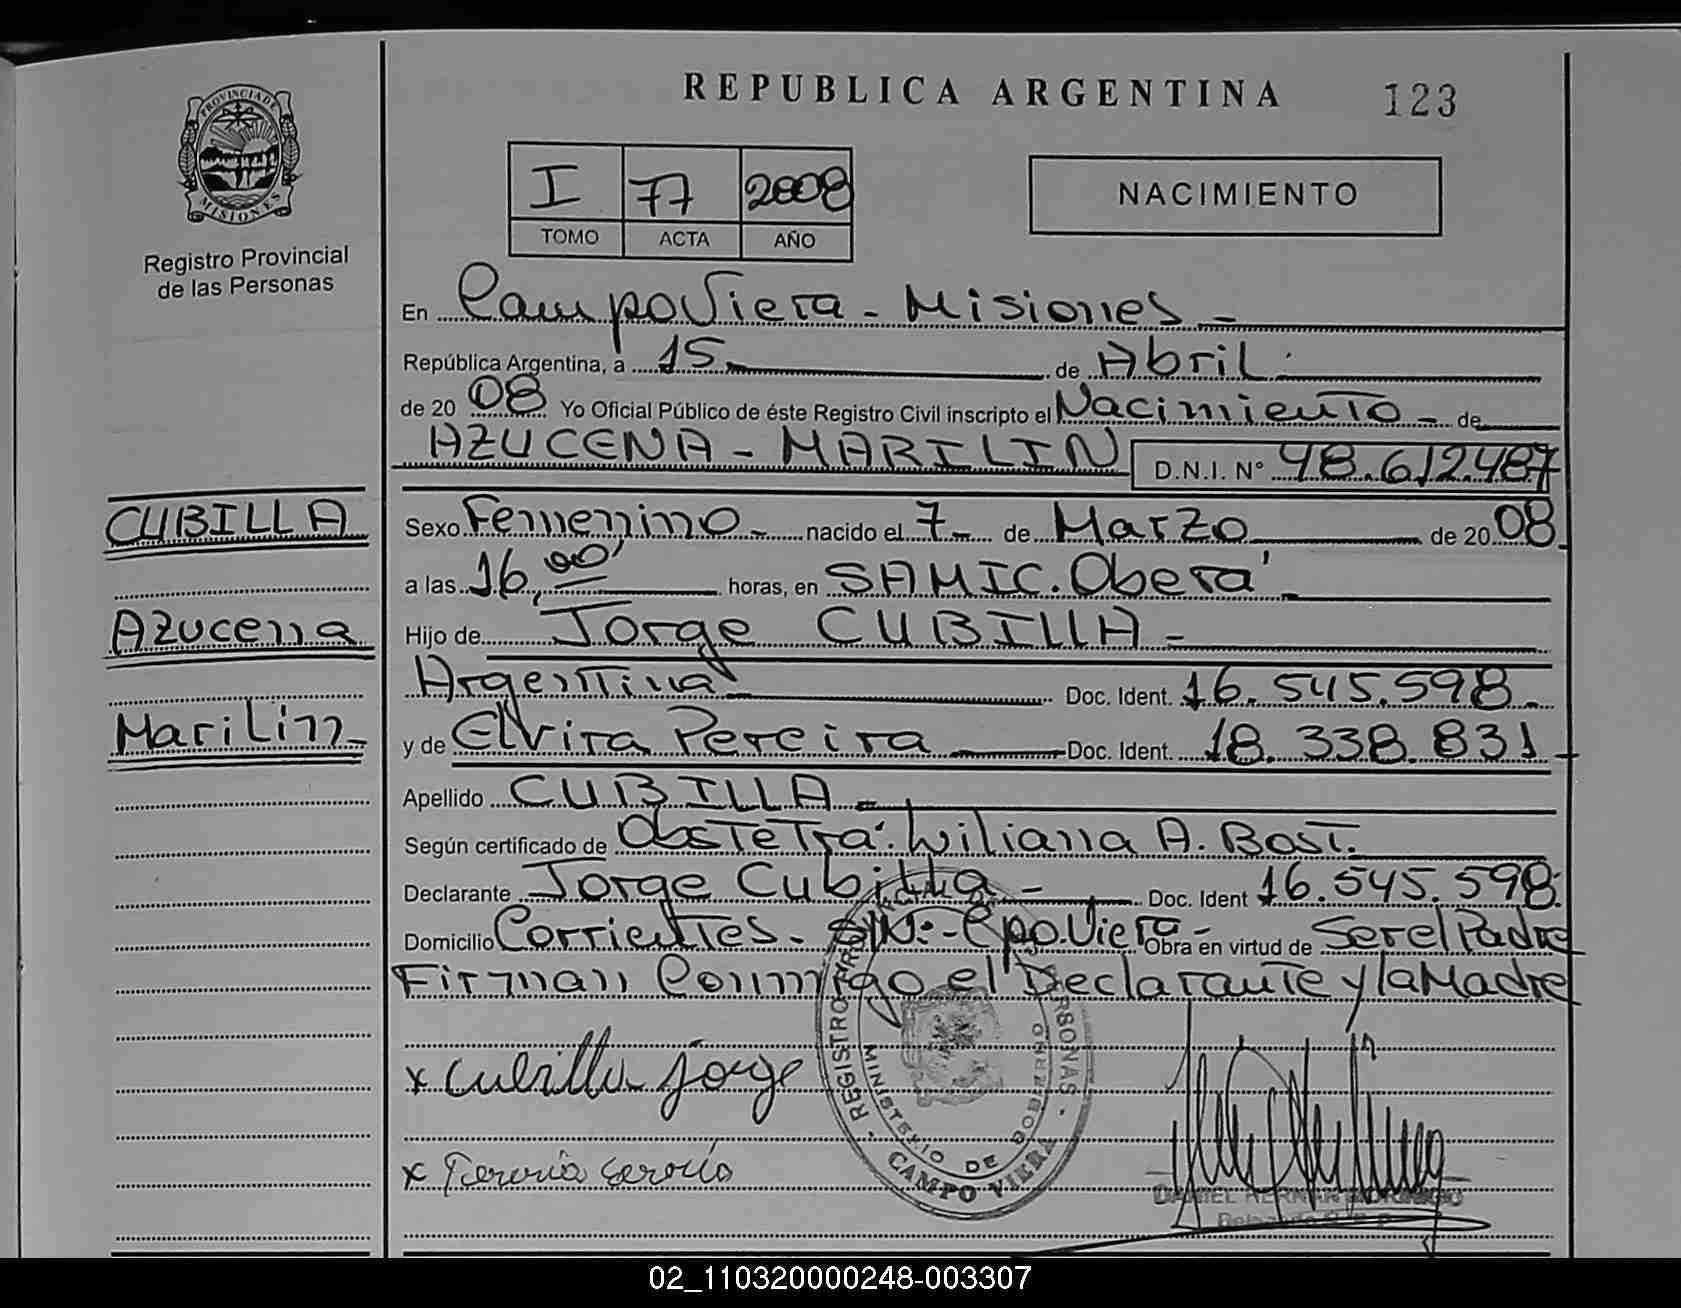 REPUBLICA ARGENTINA
123
PROVINCIA DE
MISIONES
Registro Provincial
de las Personas
I 77 2008
TOMO ACTA AÑO
NACIMIENTO
En Campo Viera - Misiones -
República Argentina, a 15 de Abril
de 2008 Yo Oficial Público de éste Registro Civil inscripto el Nacimiento - de
AZUCENA - MARILIN D.N.I. N° 48.612.487
CUBILLA
Azucena
Marilin
Sexo Femenino - nacido el 7 - de Marzo de 2008
a las 16,00 horas, en SAMIC. Oberá
Hijo de Jorge CUBILLA -
Argentina Doc. Ident. 16.545.598 -
y de Elvira Pereira Doc. Ident. 18.338.831
Apellido CUBILLA -
Según certificado de Obstetra: Liliana A. Bast.
Declarante Jorge Cubilla - Doc. Ident 16.545.598
Domicilio Corrientes - S/N: - Cpo. Viera - Obra en virtud de Ser el Padre
Firman Conmigo el Declarante y la Madre
x Cubilla Jorge
x
REGISTRO PROVINCIAL DE LAS PERSONAS -
MINISTERIO DE GOBIERNO
CAMPO VIERA
DANIEL HERNAN
02_110320000248-003307